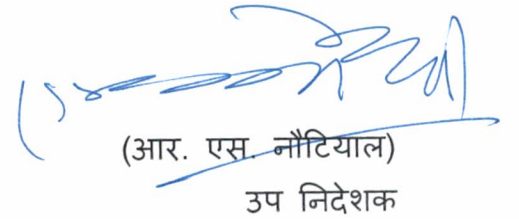 (आर. एस. नौटियाल)
उप निदेशक